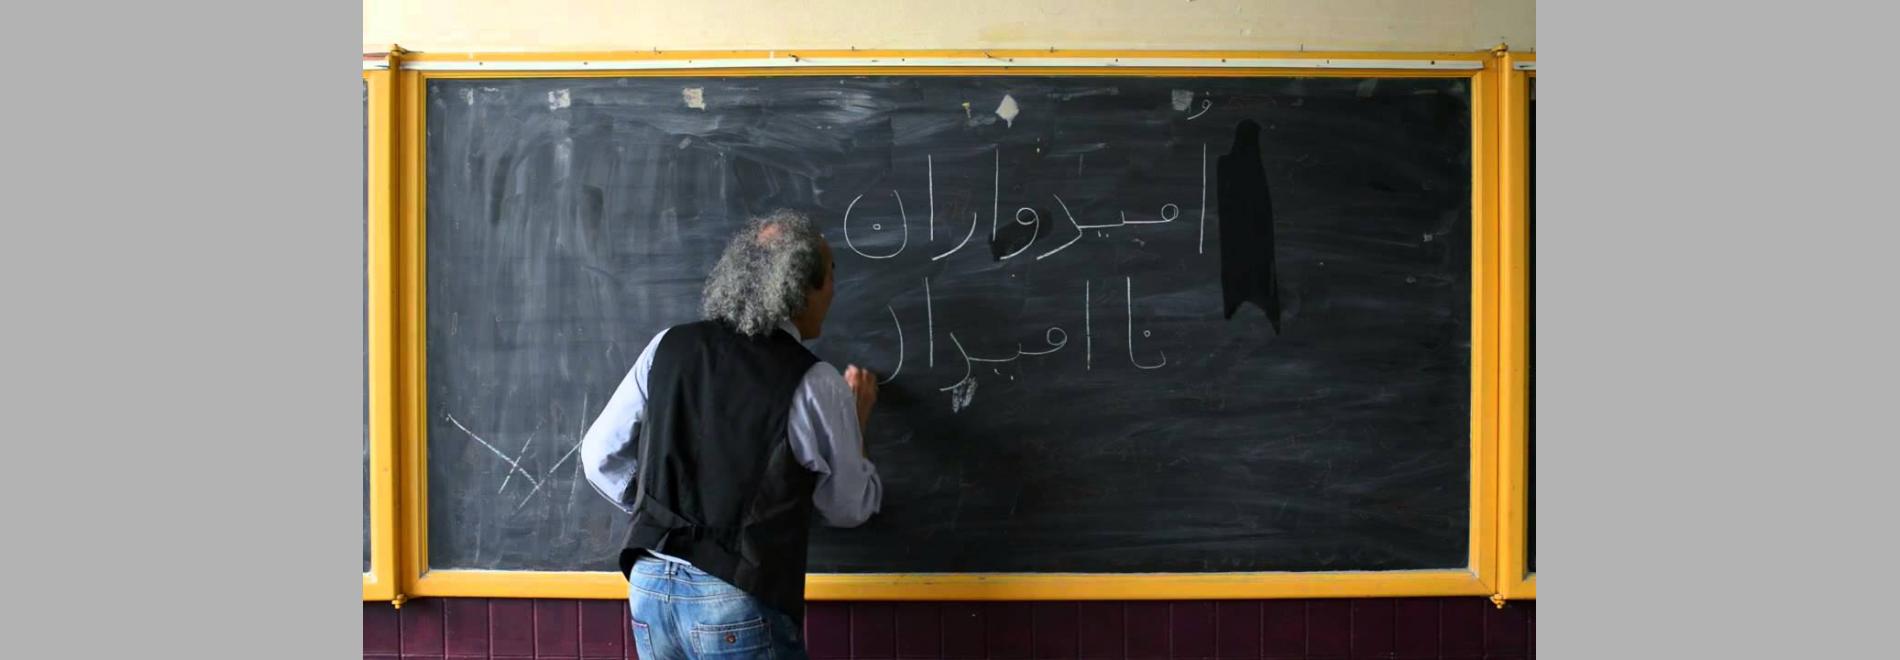 امیدواران
نا امیدار